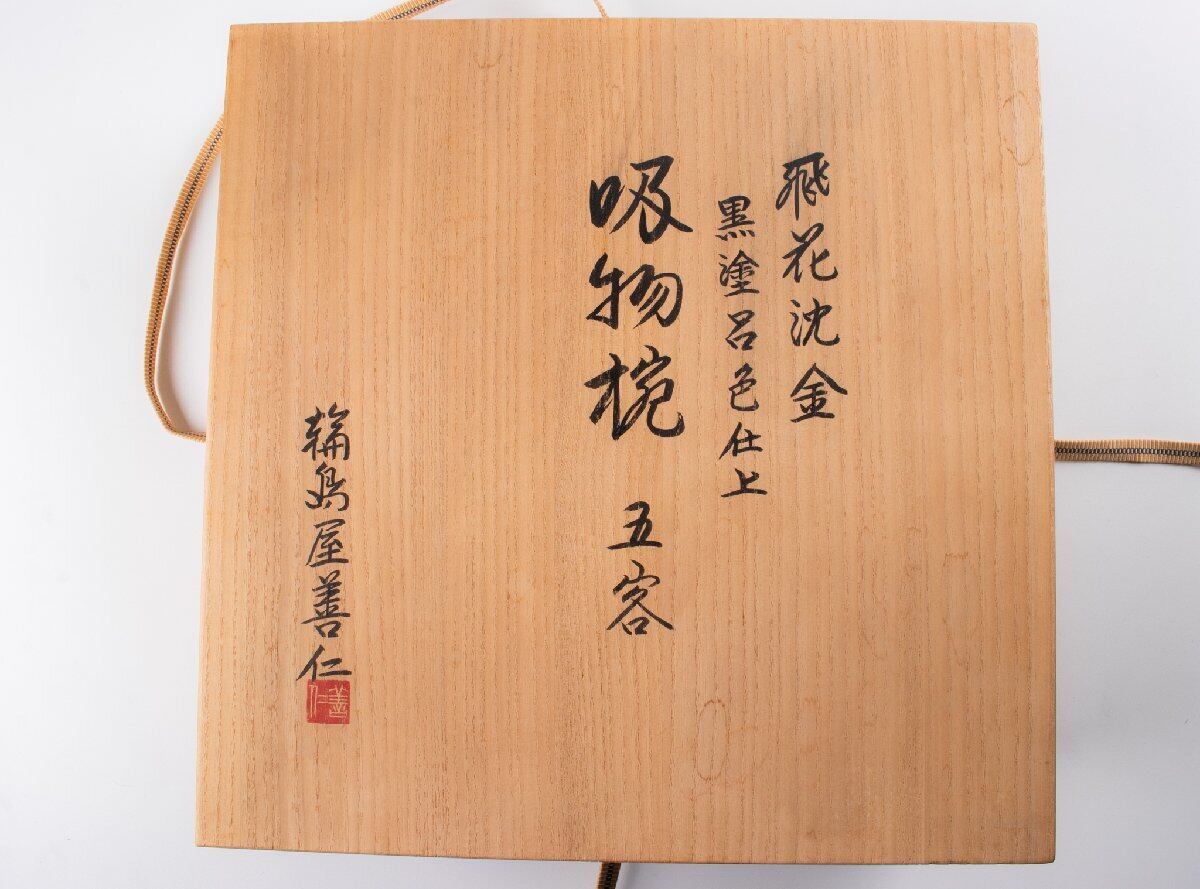 飛花沈金
黒塗呂色仕上
吸物椀 五客
輪島屋善仁
善仁